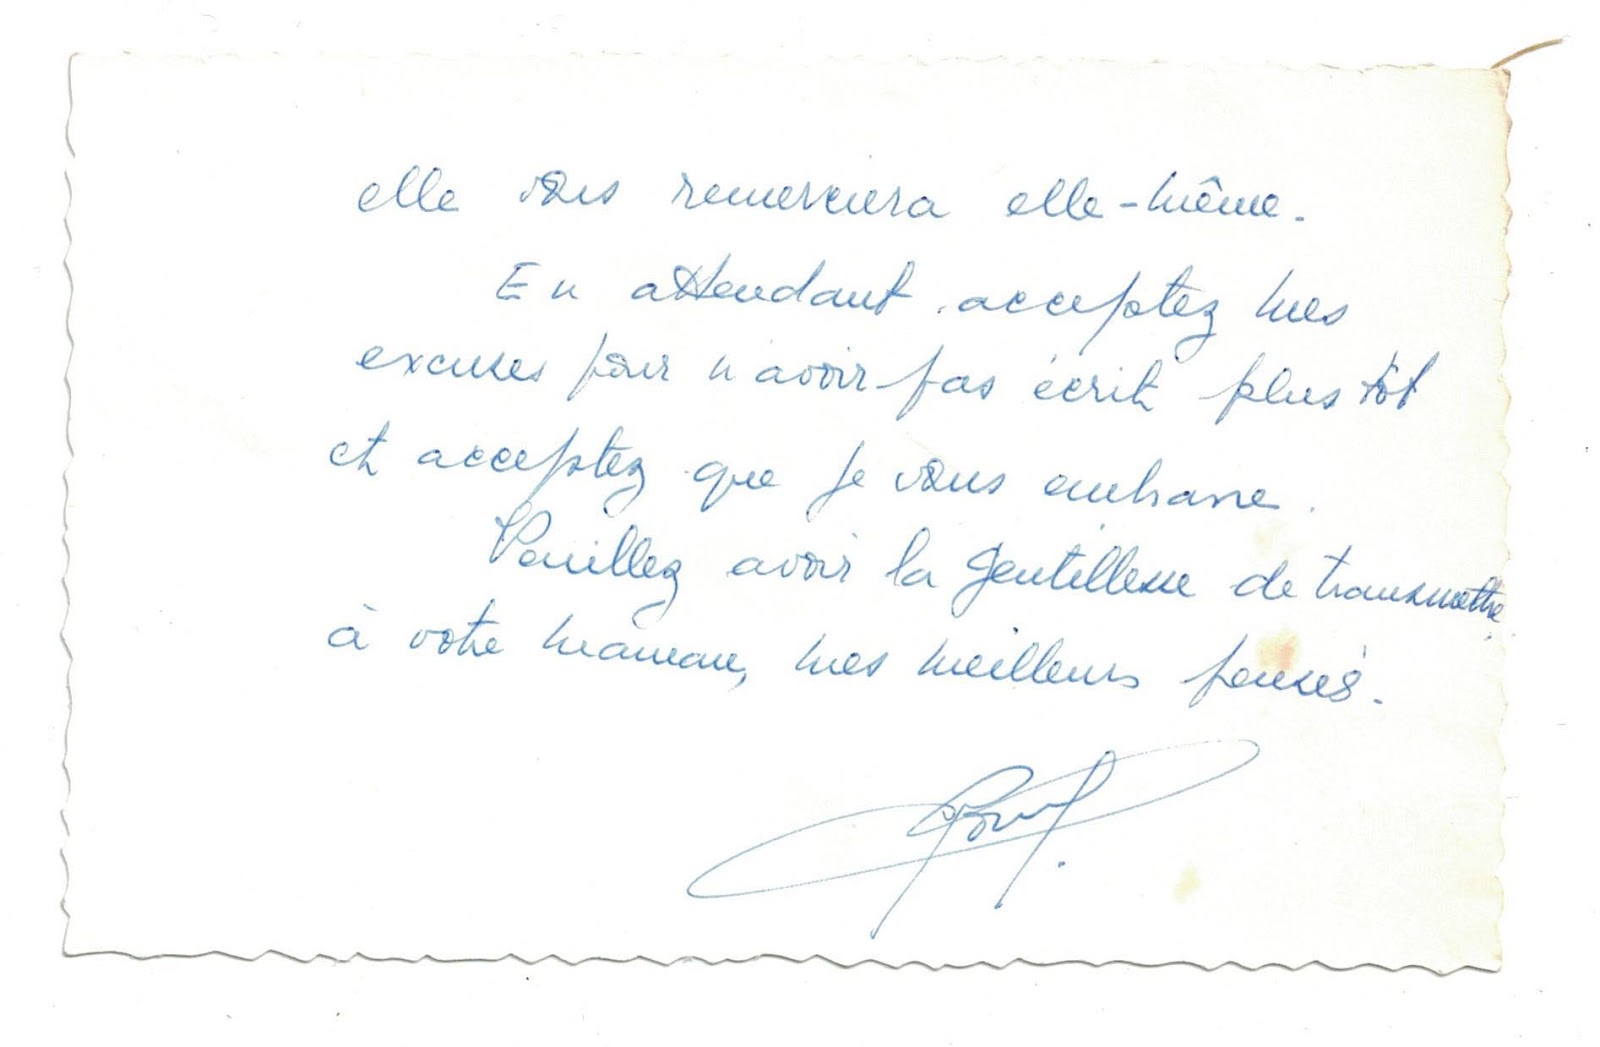 elle vous remerciera elle-même.
En attendant acceptez mes
excuses pour n'avoir pas écrit plus tôt
et acceptez que je vous embrasse.
Veuillez avoir la gentillesse de transmettre
à votre maman, mes meilleurs pensés.